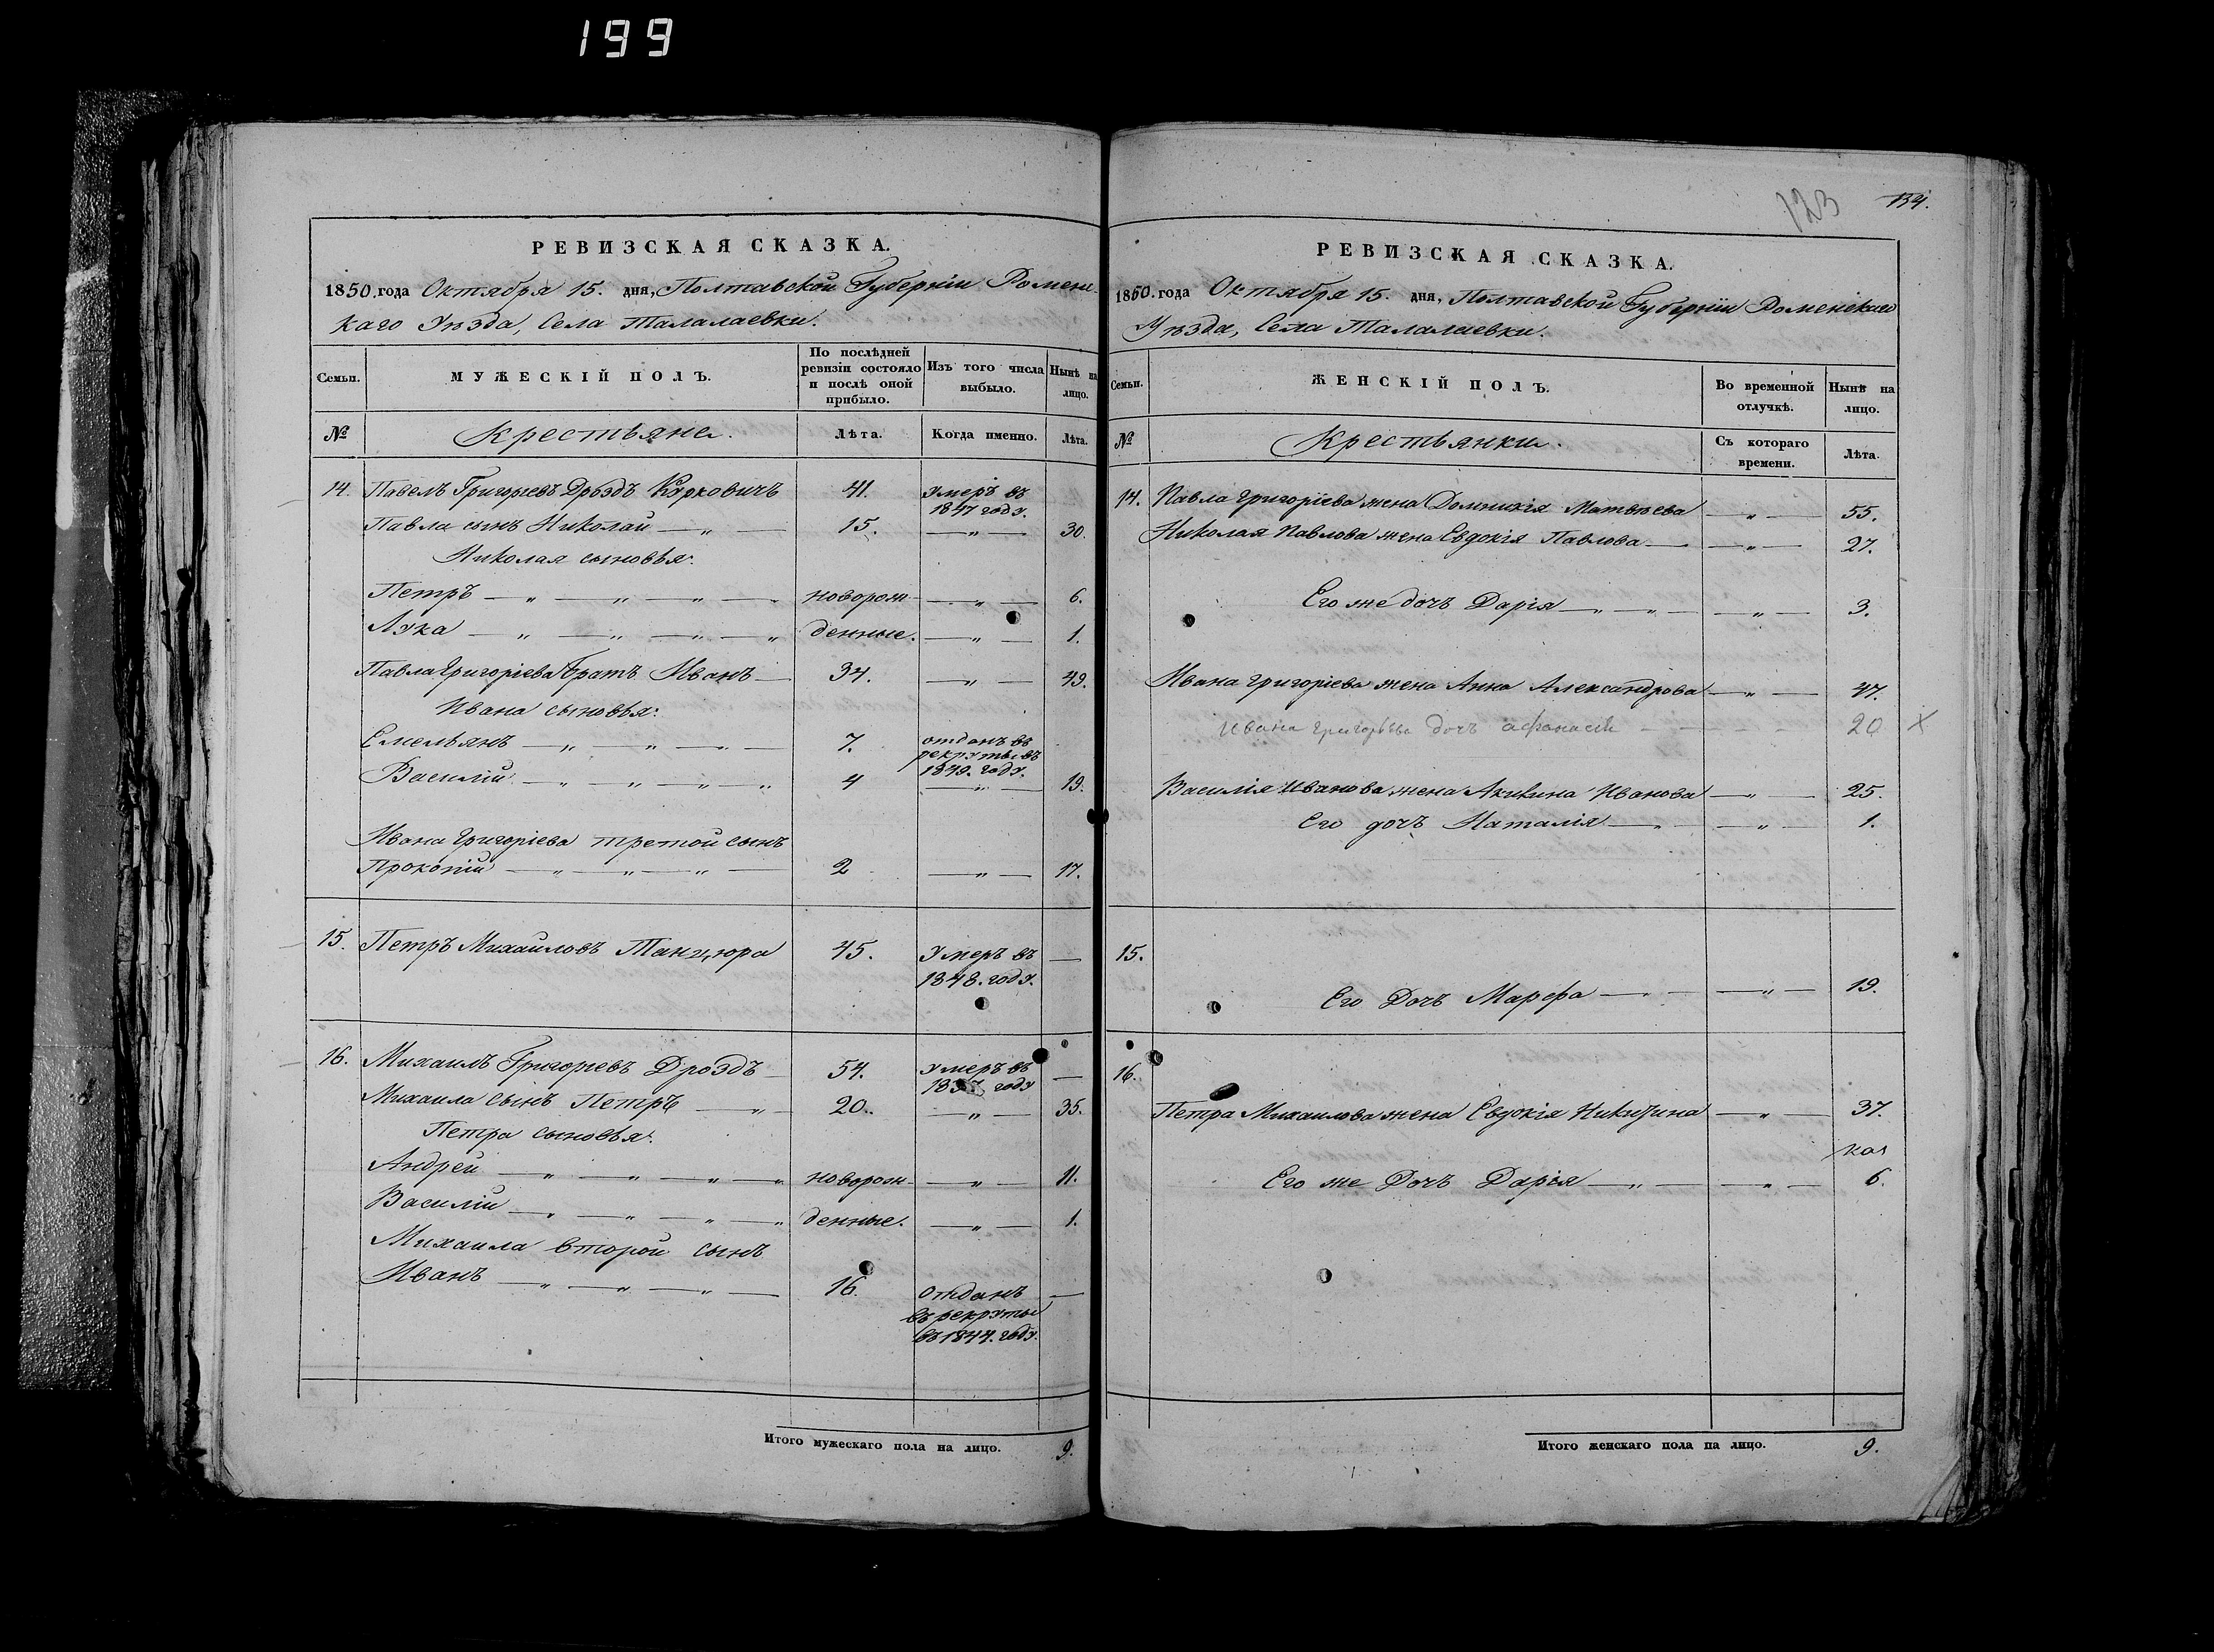 199
РЕВИЗСКАЯ СКАЗКА.
1850. года Октября 15. дня, Полтавской Губерніи Роменс-
каго Уѣзда, Села Талалаевки.
Семьи.
МУЖЕСКІЙ ПОЛЪ.
По послѣдней ревизіи состояло и послѣ оной прибыло.
Изъ того числа выбыло.
Нынѣ на лицо.
№ Крестьяне. Лѣта. Когда именно. Лѣта.
14. Павелъ Григорьевъ Дроздъ 41. Умеръ въ
1847 году.
Павла сынъ Николай — „ — 15. — „ — 30.
Николая сыновья:
Петръ — „ — „ — „ — новорож- — „ — 6.
Лука — „ — „ — „ — „ денные. — „ — 1.
Павла Григоріева братъ Иванъ — 34. — „ — 49.
Ивана сыновья:
Емельянъ — „ — „ — „ — 7. отданъ въ
рекруты въ
1849. году.
Василій — „ — „ — „ — „ 4 — „ — 19.
Ивана Григоріева третой сынъ
Прокопій — „ — „ — „ — 2 — „ — 17.
15. Петръ Михайловъ Танцюра 45. Умеръ въ —
1848. году.
16. Михаилъ Григорьевъ Дроздъ 54. Умеръ въ —
году
Михаила сынъ Петръ — „ — 20. — „ — 35.
Петра сыновья:
Андрей — „ — „ — „ — „ новорож- — „ — 11.
Василій — „ — „ — „ — „ денные. — „ — 1.
Михаила второй сынъ
Иванъ — „ — „ — „ — 16. Отданъ —
въ рекруты
въ 1844. году.
Итого мужескаго пола на лицо. 9.
123 134.
РЕВИЗСКАЯ СКАЗКА.
1850. года Октября 15. дня, Полтавской Губерніи Роменскаго
Уѣзда, Села Талалаевки.
Семьи.
ЖЕНСКІЙ ПОЛЪ.
Во временной отлучкѣ.
Нынѣ на лицо.
№ Крестьянки. Съ котораго времени. Лѣта.
14. Павла Григоріева жена Домникія Матвѣева — „ — 55.
Николая Павлова жена Евдокія Павлова — — „ — 27.
Его же дочъ Дарія — „ — „ — — „ — 3.
Ивана Григоріева жена Анна Александрова — „ — 47.
Ивана Григорьева дочъ 20 X
Василія Иванова жена Акилина Иванова — „ — 25.
Его дочъ Наталія — „ — — „ — 1.
15.
Его Дочъ Марефа — „ — — „ — 19.
16.
Петра Михаилова жена Евдокія Никитина — „ — 37.
Его же Дочъ Дарія — „ — — „ — 6.
Итого женскаго пола на лицо. 9.